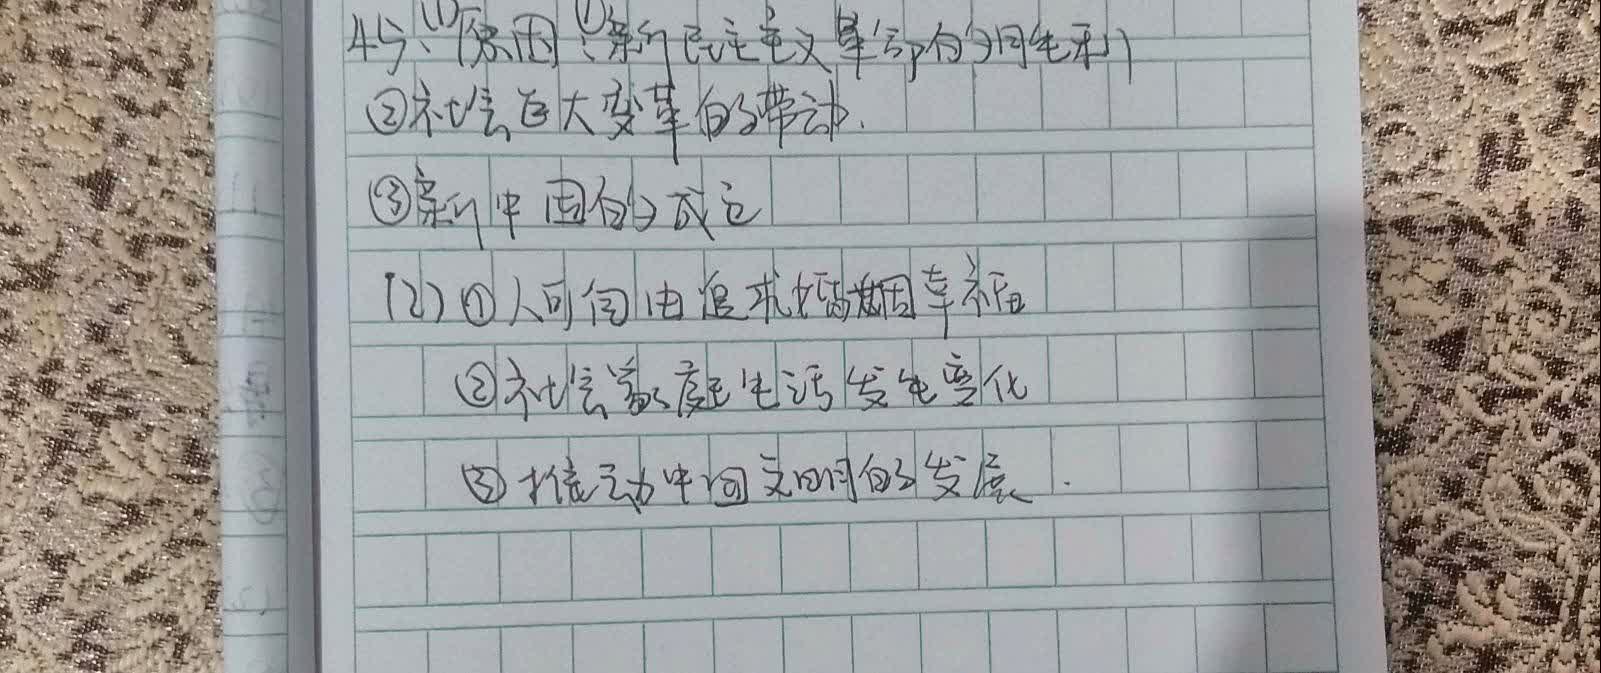 45、(1)原因:①新民主主义革命的胜利
②社会巨大变革的带动.
③新中国的成立
(2)①人可自由追求婚姻幸福
②社会家庭生活发生变化
③推动中国文明的发展.